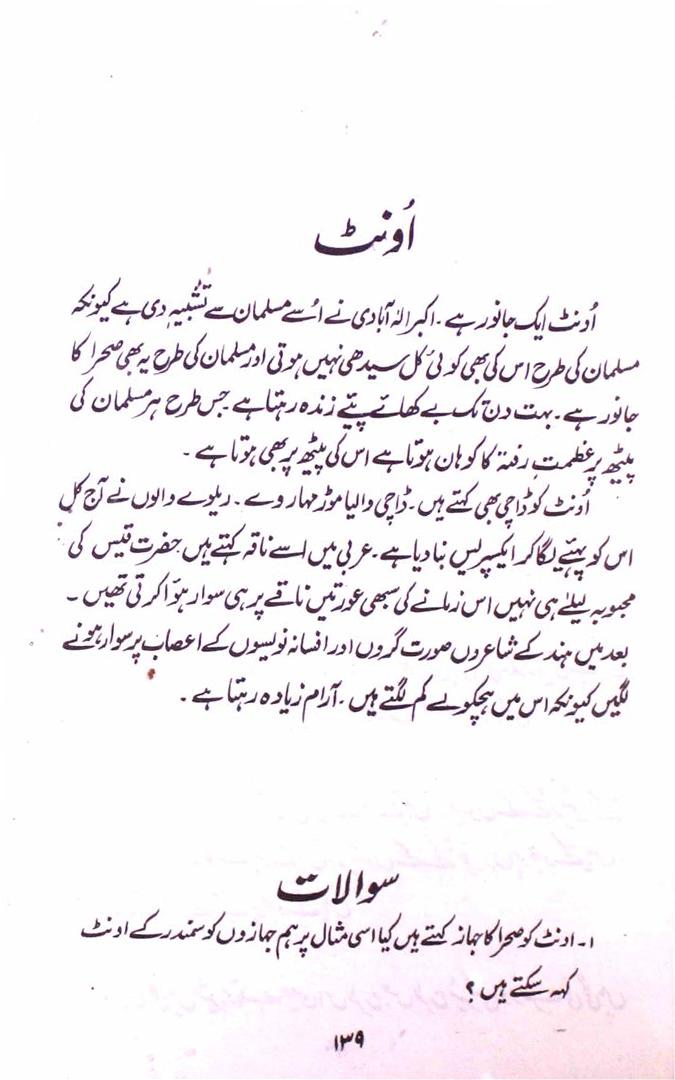 اُونٹ
اُونٹ ایک جانور ہے۔ اکبر الہٰ آبادی نے اُسے مسلمان سے تشبیہہ دی ہے کیونکہ
مسلمان کی طرح اس کی بھی کوئی کل سیدھی نہیں ہوتی اور مسلمان کی طرح یہ بھی صحرا کا
جانور ہے۔ بہت دن تک بے کھائے پئیے زندہ رہتا ہے جس طرح ہر مسلمان کی
پیٹھ پر عظمتِ رفتہ کا کوہان ہوتا ہے اس کی پیٹھ پر بھی ہوتا ہے۔
اُونٹ کو ڈاچی بھی کہتے ہیں۔ ڈاچی والیا موڑ مہار وے۔ ریلوے والوں نے آج کل
اس کو پہئیے لگا کر ایکسپریس بنا دیا ہے۔ عربی میں اسے ناقہ کہتے ہیں حضرت قیس کی
محبوبہ لیلےٰ ہی نہیں اس زمانے کی سبھی عورتیں ناقے پر ہی سوار ہوٴا کرتی تھیں۔
بعد میں ہند کے شاعروں صورت گروں اور افسانہ نویسوں کے اعصاب پر سوار ہونے
لگیں کیونکہ اس میں ہچکولے کم لگتے ہیں۔ آرام زیادہ رہتا ہے۔
سوالات
۱۔ اونٹ کو صحرا کا جہاز کہتے ہیں کیا اسی مثال پر ہم جہازوں کو سمندر کے اونٹ
کہہ سکتے ہیں؟
۱۳۹